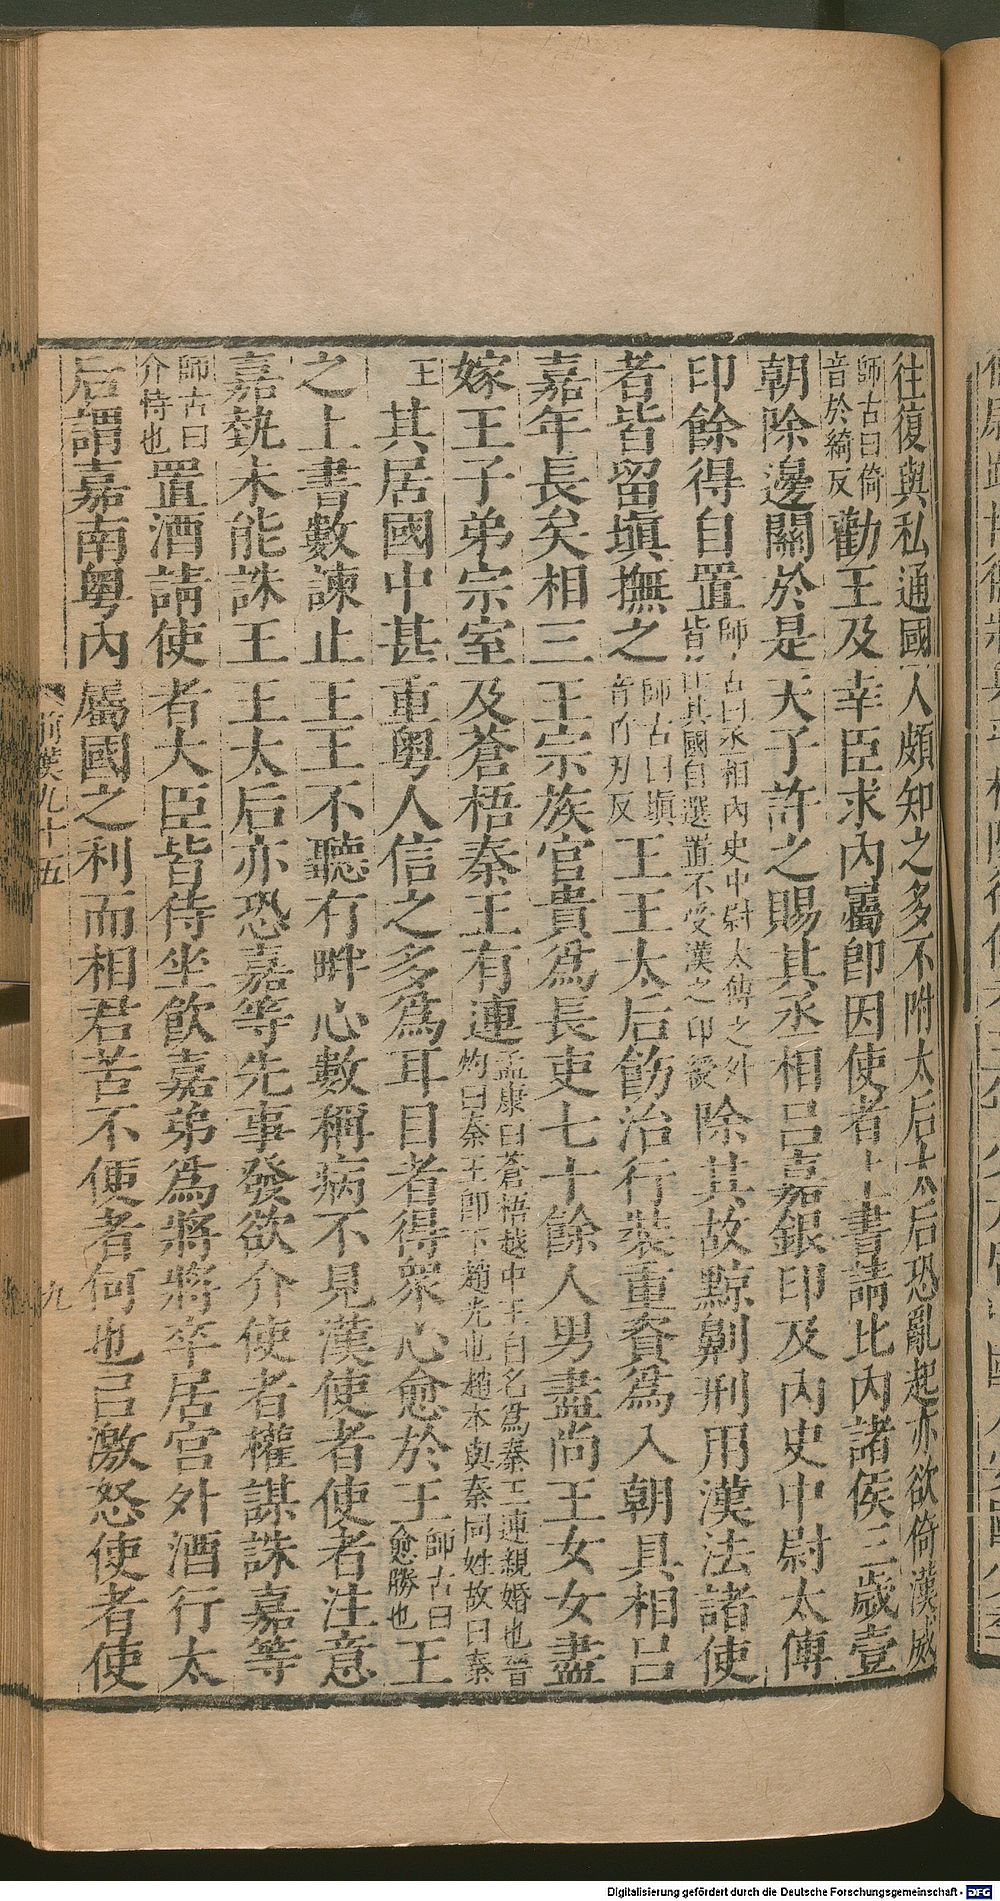 往復與私通國人頗知之多不附太后太后恐亂起亦欲倚漢威
師古曰倚音於綺反勸王及幸臣求內屬卽因使者上書請比內諸侯三歲壹
朝除邊關於是天子許之賜其丞相呂嘉銀印及內史中尉太傅
印餘得自置師古曰丞相內史中尉太傅之外皆任其國自選置不受漢之印綬除其故黥劓刑用漢法諸使
者皆留塡撫之師古曰塡音竹刃反王王太后飭治行裝重資爲入朝具相呂
嘉年長矣相三王宗族官貴爲長吏七十餘人男盡尚王女女盡
嫁王子弟宗室及蒼梧秦王有連孟康曰蒼梧越中王自名爲秦王連親婚也晉灼曰秦王卽下趙光也趙本與秦同姓故曰秦
王其居國中甚重粵人信之多爲耳目者得衆心愈於王師古曰愈勝也王
之上書數諫止王王不聽有畔心數稱病不見漢使者使者注意
嘉埶未能誅王王太后亦恐嘉等先事發欲介使者權謀誅嘉等
師古曰介恃也置酒請使者大臣皆侍坐飮嘉弟爲將將卒居宮外酒行太
后謂嘉南粤內屬國之利而相君苦不便者何也㠯激怒使者使
前漢九十五
九
Digitalisierung gefördert durch die Deutsche Forschungsgemeinschaft - DFG